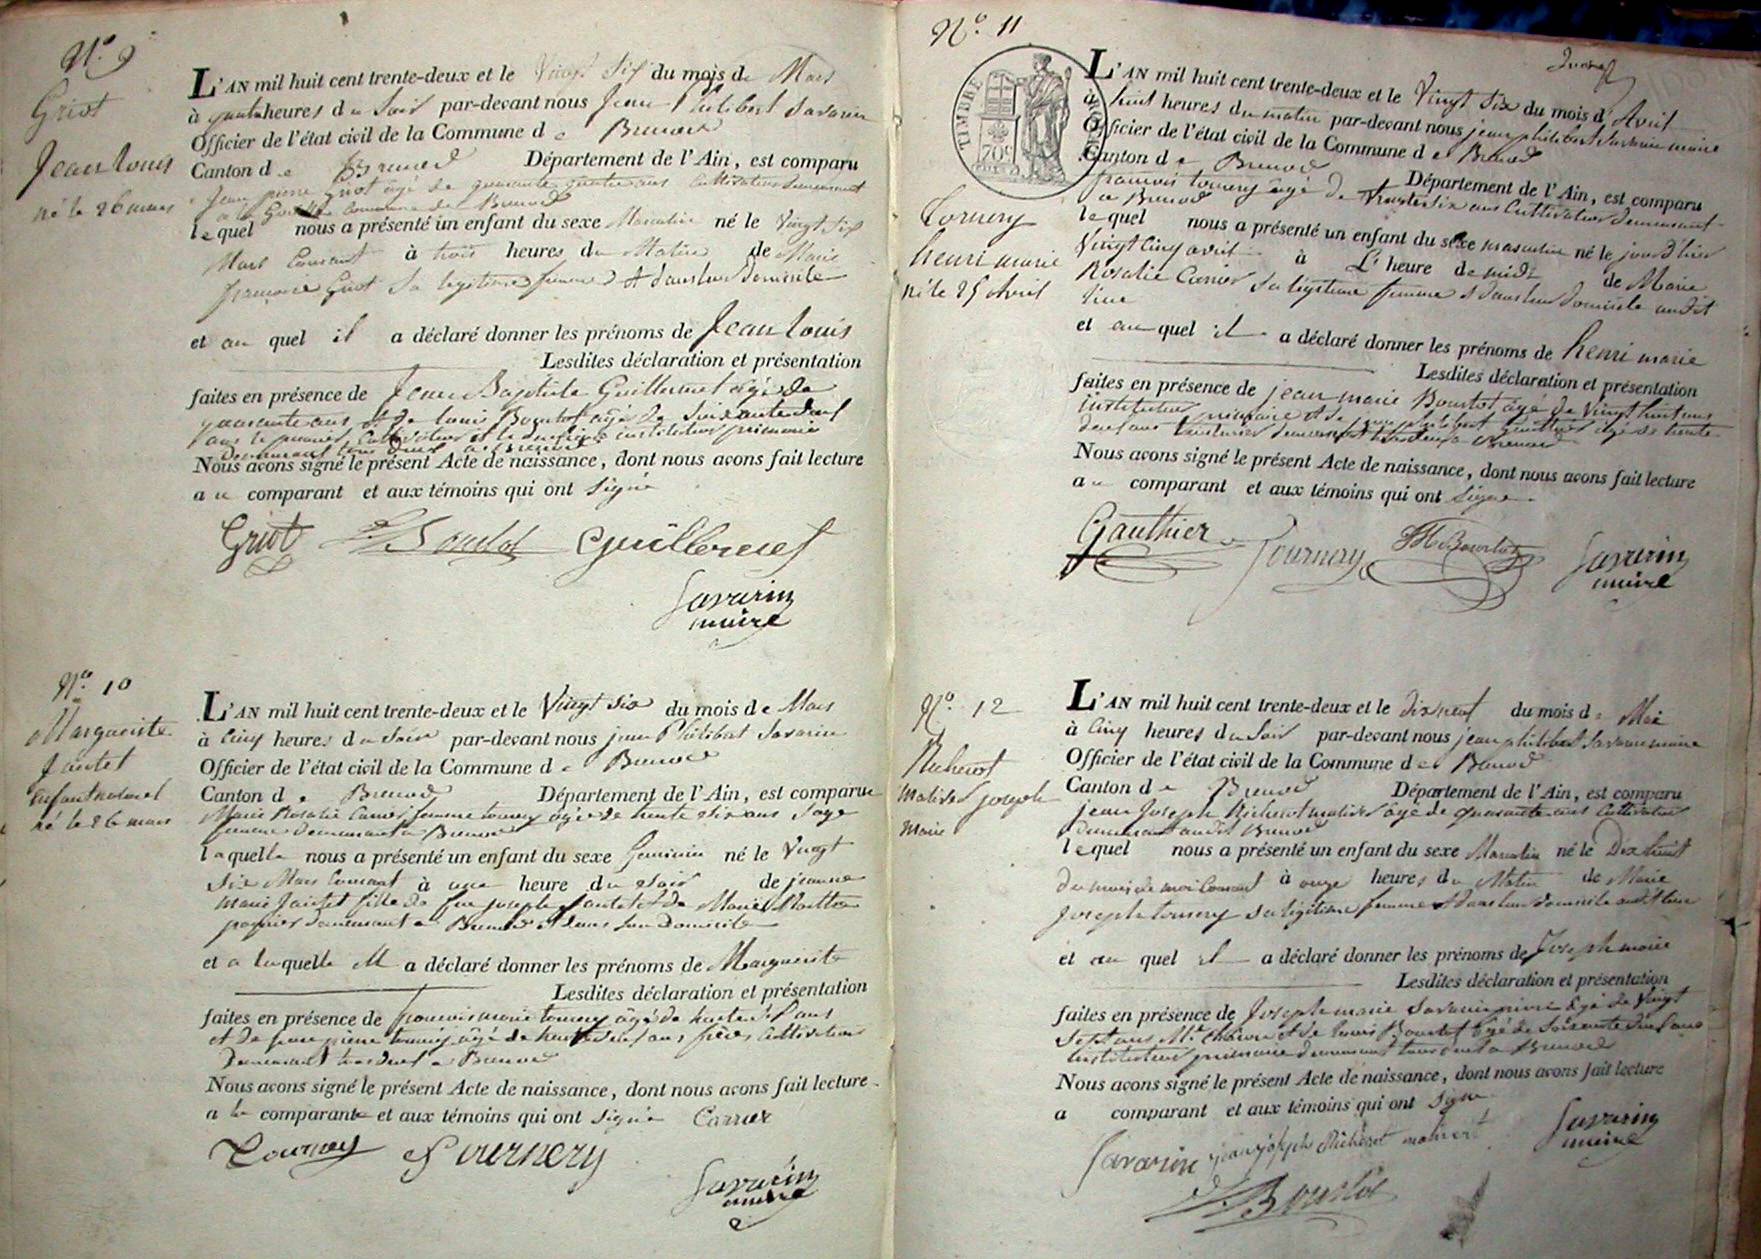 N.° 9
Griot
Jean Louis
né le 26 mars
L'AN mil huit cent trente-deux et le Vingt Six du mois de Mars
à quatre heures du Soir par-devant nous Jean Philibert Savarin
Officier de l'état civil de la Commune de Brenod
Canton de Brenod Département de l'Ain, est comparu
Jean pierre Griot agé de quarante quatre ans Cultivateur demeurant
commune de Brenod
lequel nous a présenté un enfant du sexe Masculin né le Vingt Six
Mars Courant à trois heures du Matin de Marie
françoise Griot Sa legitime femme et dans leur domicile
et au quel il a déclaré donner les prénoms de Jean Louis
Lesdites déclaration et présentation
faites en présence de Jean Baptiste Guillermet agé de
quarante ans et de Louis Bourlot agé de Soixante deux
ans le premier Cultivateur et le deuxième instituteur primaire
demeurant tous deux a Brenod
Nous avons signé le présent Acte de naissance, dont nous avons fait lecture
au comparant et aux témoins qui ont signé
Griot Bourlot Guillermet
Savarin
maire
N.° 10
Marguerite
Jantet
Enfant naturel
né le 26 mars
L'AN mil huit cent trente-deux et le Vingt Six du mois de Mars
à Cinq heures du Soir par-devant nous jean Philibert Savarin
Officier de l'état civil de la Commune de Brenod
Canton de Brenod Département de l'Ain, est comparue
Marie Rosalie Carrier femme tournery agée de trente Six ans Sage
femme demeurant a Brenod
laquelle nous a présenté un enfant du sexe feminin né le Vingt
Six Mars Courant à une heure du Soir de jeanne
marie Jantet fille de feu joseph Jantet et de Marie Marthe
demeurant a Brenod et dans son domicile
et a laquelle Ell a déclaré donner les prénoms de Marguerite
Lesdites déclaration et présentation
faites en présence de francois marie tournery âgé de trente Six ans
et de jean pierre tournery âgé de ans frères Cultivateurs
Demeurant tous deux a Brenod
Nous avons signé le présent Acte de naissance, dont nous avons fait lecture
a la comparante et aux témoins qui ont signé Carrier
Tournery Tournery
Savarin
maire
N.° 11
TIMBRE ROYAL
70c
Tornery
henri marie
né le 25 Avril
L'AN mil huit cent trente-deux et le Vingt Six du mois d Avril
à huit heures du matin par-devant nous jean philibert Savarin maire
Officier de l'état civil de la Commune de Brenod
Canton de Brenod Département de l'Ain, est comparu
francois tournery agé de trente Six ans Cultivateur demeurant
a Brenod
lequel nous a présenté un enfant du sexe masculin né le jour d'hier
Vingt Cinq avril à L' heure de midi de Marie
Rosalie Carrier Sa legitime femme et dans leur domicile audit
lieu
et au quel il a déclaré donner les prénoms de henri marie
Lesdites déclaration et présentation
faites en présence de jean marie Bourlot agé de Vingt huit ans
instituteur primaire et de jean philibert Gauthier agé de trente
deux ans demeurant tous deux a Brenod
Nous avons signé le présent Acte de naissance, dont nous avons fait lecture
au comparant et aux témoins qui ont signé
Gauthier Tournery JM Bourlot Savarin
maire
N.° 12
Richerot
joseph
Marie
L'AN mil huit cent trente-deux et le Dix neuf du mois de Mai
à Cinq heures du Soir par-devant nous jean philibert Savarin maire
Officier de l'état civil de la Commune de Brenod
Canton de Brenod Département de l'Ain, est comparu
jean Joseph Richerot agé de quarante ans Cultivateur
demeurant audit Brenod
lequel nous a présenté un enfant du sexe Masculin né le Dix huit
du mois de mai Courant à onze heures du Matin de Marie
Joseph tournery Sa legitime femme et dans leur domicile audit lieu
et au quel il a déclaré donner les prénoms de Joseph marie
Lesdites déclaration et présentation
faites en présence de Joseph marie Savarin agé de Vingt
Sept ans et de Louis Bourlot agé de Soixante deux ans
instituteur primaire demeurant tous deux a Brenod
Nous avons signé le présent Acte de naissance, dont nous avons fait lecture
a comparant et aux témoins qui ont signé
Savarin jean joseph Richerot Savarin
maire
Bourlot